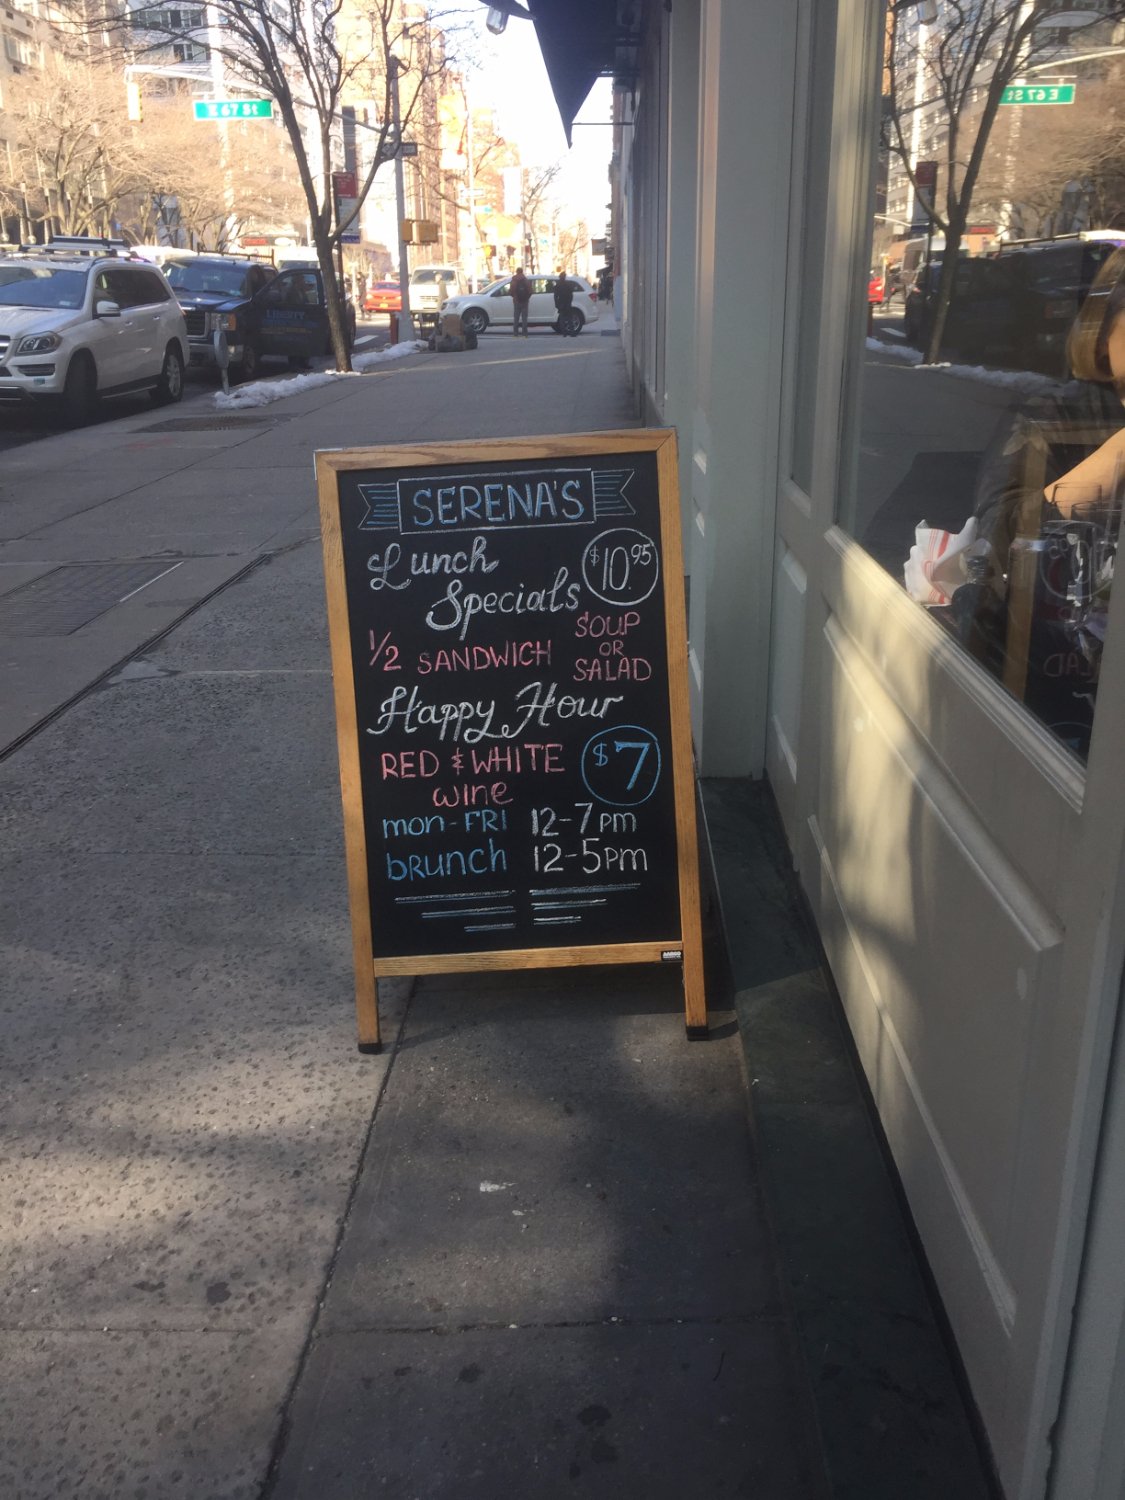 E 67 St
E 67 St
LIBERTY
SERENA'S
Lunch
Specials
$10.95
1/2 SANDWICH
SOUP
OR
SALAD
Happy Hour
RED & WHITE
wine
$7
mon-FRI 12-7pm
brunch 12-5pm